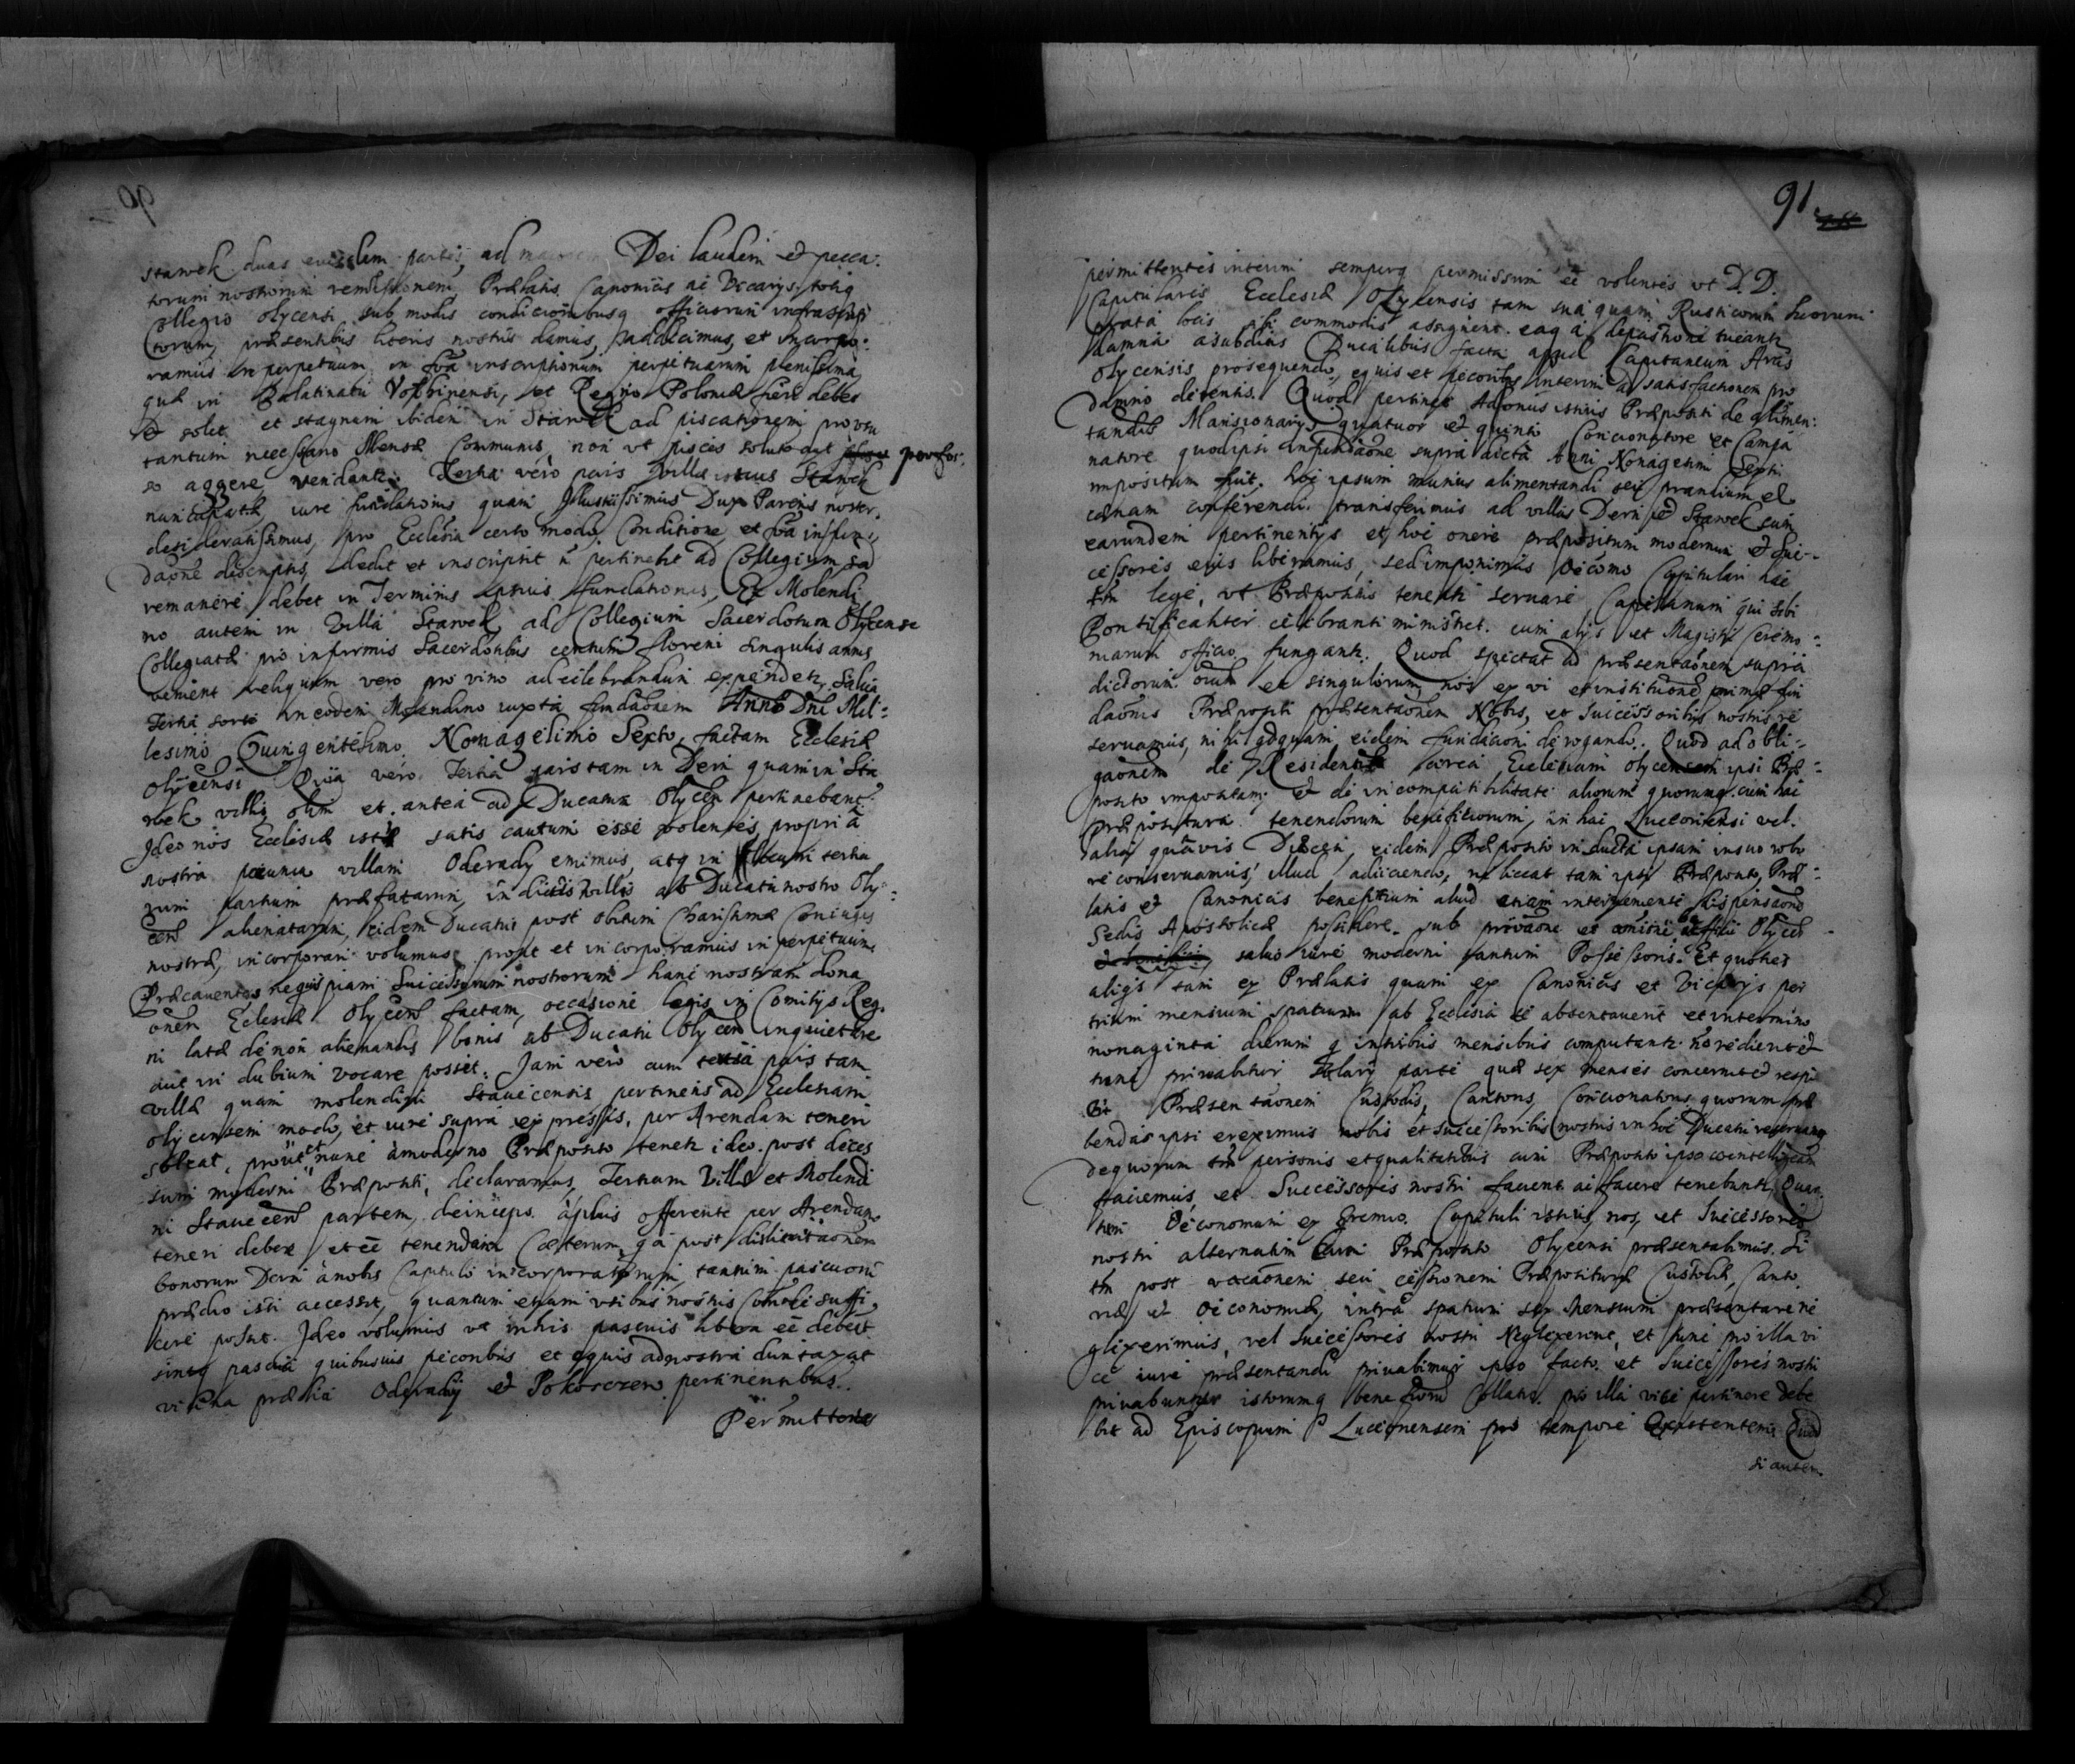 90
Stawek duas eiusdem partes, ad maiorem Dei laudem et pecca-
torum nostrorum remissionem Prælatis Canonicis ac Vicarijs, totiq
Collegio Olycensi sub modis condicionibusq officiorum infrascrip
torum, præsentibus literis nostris damus, addicimus, et incorpo:
ramus in perpetuum in foã inscriptionum perpetuarum plenissima
quæ in Palatinatu Volhinensi, et Regno Poloniæ fieri debet
et solet et stagnum ibidem in Stawek ad piscationem pro usu
tantum necessario Mensæ Communis, non ut pisces soluto aut perfos:
so aggere vendantr. Tertia vero pars villæ istius Stawek
nuncupatæ, iure fundationis quam Illustrissimus Dux Parens noster
desideratissimus, pro Ecclesia certo modo, Conditione, et foã in fun
daõne descriptis, dedit et inscripsit ñ pertinebit ad Collegium, sed
remanere debet in Terminis ipsius fundationis, Ex Molendi
no autem in Villa Stawek ad Collegium Sacerdotum Olycense
Collegiatæ pro infirmis Sacerdotibus centum floreni singulis annis
venient reliquum vero pro vino ad celebrandum expendetr, Salva
Tertia sorte in eodem Molendino iuxta fundaõnem Anno Dni Mil-
lesimo Quingentesimo Nonagesimo Sexto, factam Ecclesiæ
Olycensi Quia vero Tertia pars tam in Derni quam in Sta
wek villis olim et antea ad Ducatum Olycen pertinebant
Ideo nos Ecclesiæ istæ satis cautum esse volentes, propria
nostra pecunia villam Oderady emimus, atq in locum tertia
rum partium præfatarum, in dictis villis ab Ducatu nostro Oly-
cen alienatarum, eidem Ducatui post obitum Charissimæ Coniugis
nostræ, incorporari volumus prout et incorporamus in perpetuum
Præcaventes nequispiam Successorum nostrorum hanc nostram dona
onem Eclesiæ Olycen factam, occasione legis in Comitijs Reg
ni latæ de non alienandis bonis ab Ducatu Olycen inquietare
aut in dubium vocare posset. Jam vero cum tertia pars tam
villæ quam molendini Stavecensis pertinens ad Ecclesiam
Olycensem modo, et iure supra expressis, per Arendam teneri
soleat, prout et nunc à moderno Præposito tenetr ideo post deces
sum moderni Præpositi, declaramus, Tertiam Villæ et Molendi
ni Stavecen partem, deinceps à plus offerente per Arendam
teneri debere et eẽ tenendam Cæterum, qã post disliмitaõnem
bonorum Derni à nobis Capitulo incorporatorum, tantum pascuorũ
prædio isti accessit, quantum etiam usibus nostris suffi-
cere possit. Ideo volumus ut in his pascuis libera eẽ debeat
sintq pascua quibusvis pecoribus et equis ad nostra duntaxat
vicina prædia Oderady et Pokoszczew pertinentibus.
Permittentes
91
permittentes interim semperq permissum eẽ volentes ut D.D.
Capitulares Ecclesiæ Olycensis tam sua quam Rusticorum suorum
prata locis sibi commodis assignent eaq à depastione tueantr
damna à subditis Ducalibus facta apud Capitaneum Arcis
Olycensis prosequendo, equis et pecoribus interim ad satisfactionem pro
damno detentis. Quod pertinet ad onus istius Præpositi de alimen:
tandis Mansionarijs quatuor et quinto Concionatore et Campa
natore quod ipsi in fundaõne supra dicta Anni Nonagesimi Septi
impositum fuit, hoc ipsum munus alimentandi seu prandium et
cœnam conferendi transferimus ad villas Derni et Stawek cum
earundem pertinentijs et hoc onere præpositum modernum et suc-
cessores eius liberamus, sed imponimus Œcomo Capitulari hac
tñ lege, ut Præpositus teneatr servare Capellanum qui sibi
Pontificaliter celebranti ministret, cum alijs et Magistri Ceremo:
niarum officio fungantr. Quod spectat ad præsentaõnem supra
dictorum oĩum et singulorum, nos ex vi et institutione primæ fun
daõnis Præpositi præsentaõnem Nobis, et Successoribus nostris re
servamus, nihil qdquam eidem fundacioni derogando. Quod ad obli:
gaõnem de Residentia circa Ecclesiam Olycensem ipsi Præ:
posito impositam et de incompatibilitate aliorum quorumq cum hac
præpositura tenendorum beneficiorum, in hac Luceoriensi vel
alia quavis Diœcesi, eidem Præposito inducta ipsam in suo robo
re conservamus, illud adiiciendo, ne liceat tam ipsi Præposito, Præ:
latis et Canonicis beneficium aliud etiam interveniente dispensaõne
Sedis Apostolicæ possidere sub privaõne et amissione beneficii Olycen
salvo iure moderni tantum Possessoris. Et quoties
aliqs tam ex Prælatis quam ex Canonicis et Vicarijs per
trium mensium spatium ab Ecclesia se absentaverit et in termino
nonaginta dierum q in tribus mensibus computantr nõ redierit et
tunc privabitur salarij parte quæ sex menses concernit et respi
cit Præsentaõnem Custodis, Cantoris, Concionatoris quorum præ
bendas ipsi ereximus nobis et successoribus nostris in hoc Ducatu reservamus
de quorum tñ personis et qualitatibus cum Præposito ipso cointelligentiam
faciemus et Successores nostri facient ac facere tenebuntr. Quan
tum Œconomum ex gremio Capituli istius, nos, et Successores
nostri alternatim cum Præposito Olycensi præsentabimus. Si
tñ post vocaõnem seu cessionem Præposituræ Custodiæ, Canto
riæ et Œconomiæ, intra spatium sex Mensium præsentare ne
glexerimus, vel Successores nostri Neglexerint, et tunc pro illa vi
ce iure præsentandi privabimur ipso facto et Successores nostri
privabuntur istorumq beneficiorum Collatio pro illa vice pertinere debe
bit ad Episcopum Luceoriensem pro tempore Existentem Quod
si autem